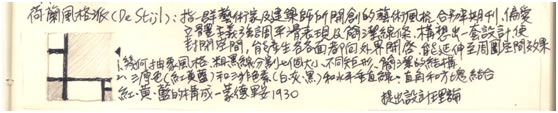 荷蘭風格派(De Stijl):指一群藝術家及建築師所開創的藝術風格,合辦期刊,偏愛
立體主義強調平滑表現及簡潔線條,構想出一套設計使
封閉空間,能產生各面看向外界開啓,能延伸至周圍空間效果
1.幾何抽象風格,粗黑線分割出七個大小不同矩形,簡潔的結構
2.三原色(紅黃藍)和三非色素(白灰、黑)和水平垂直線、直角和方塊結合
紅、黃、藍的構成—蒙德里安1930
提出設計理論